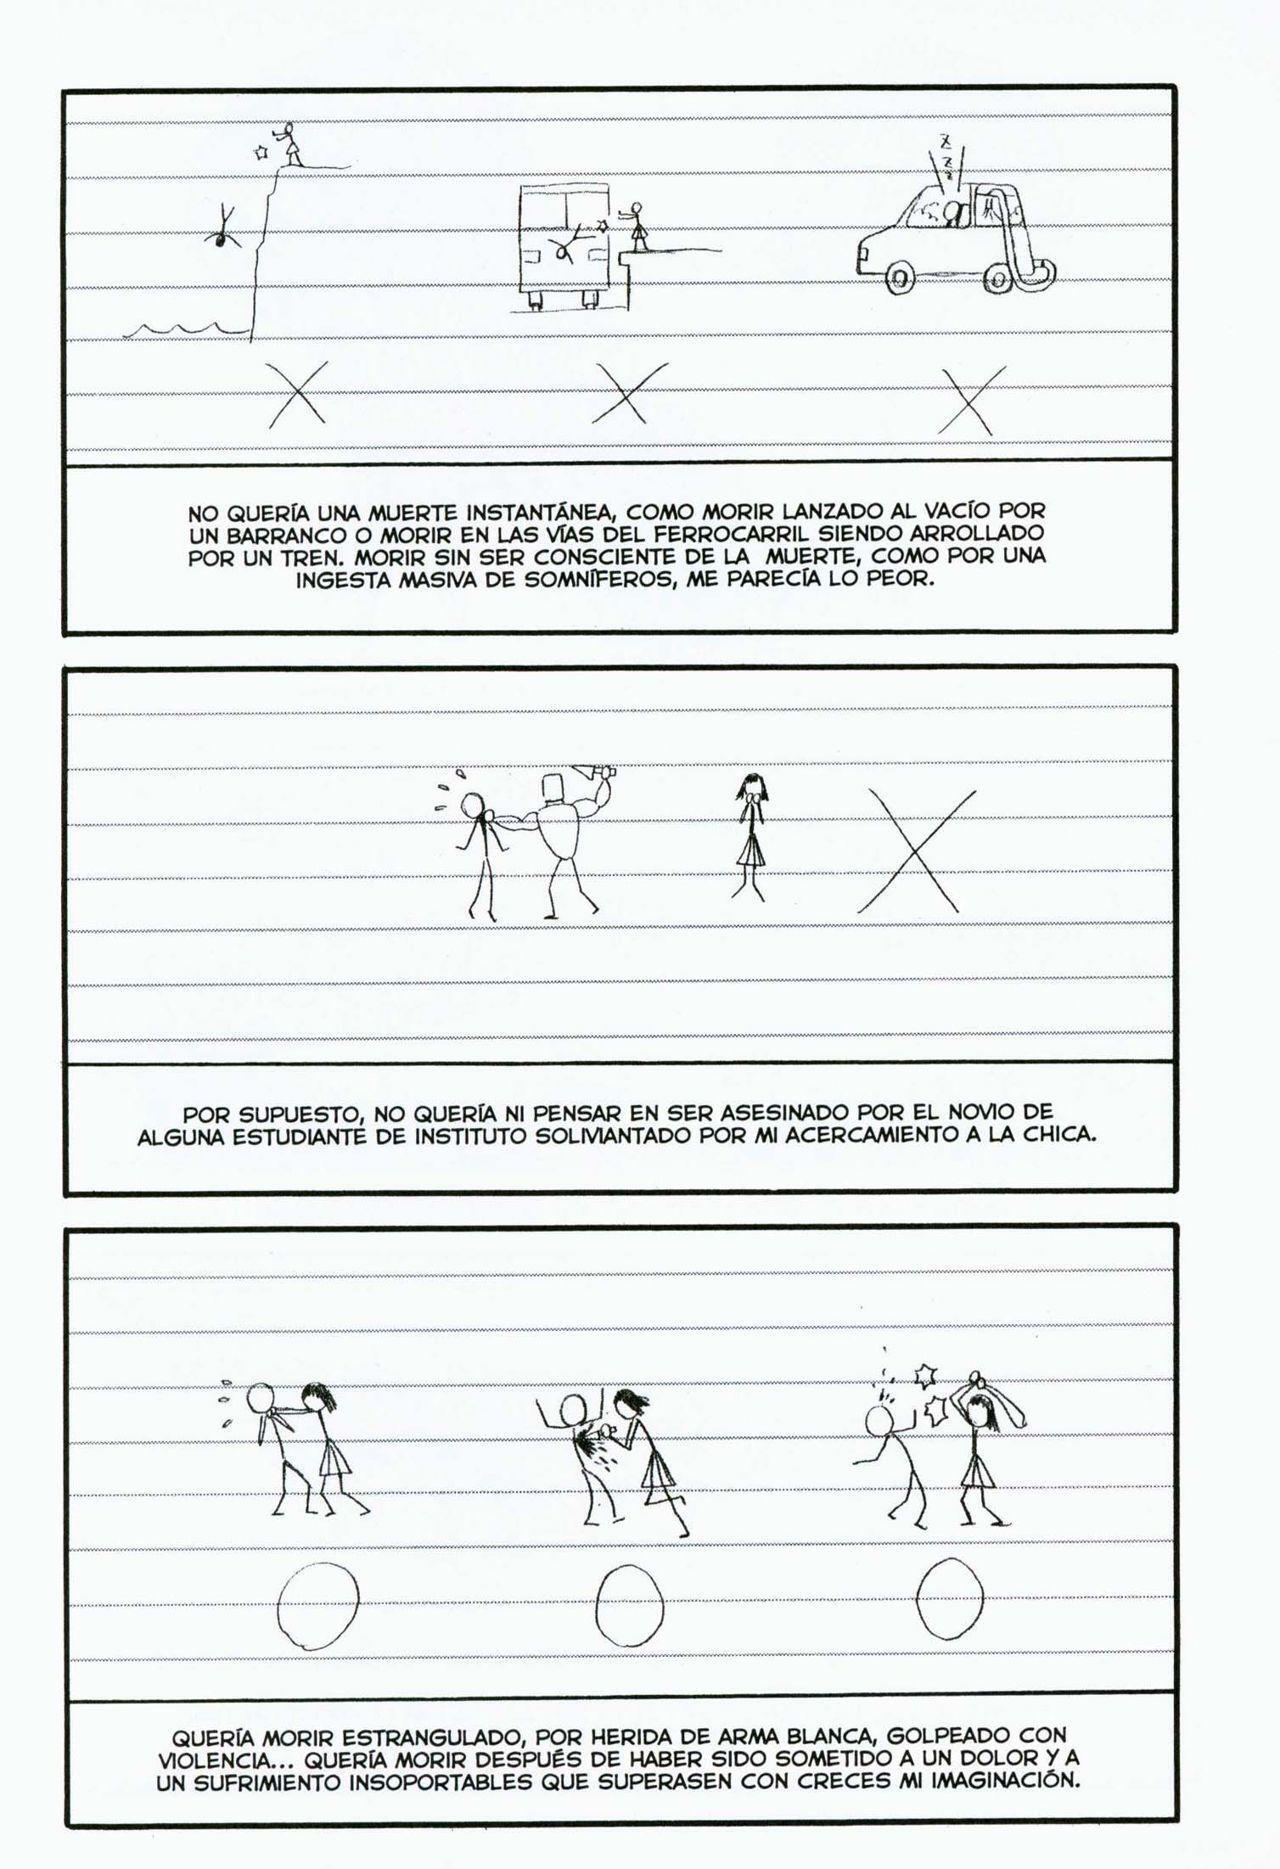 Z
Z
Z
NO QUERÍA UNA MUERTE INSTANTÁNEA, COMO MORIR LANZADO AL VACÍO POR
UN BARRANCO O MORIR EN LAS VÍAS DEL FERROCARRIL SIENDO ARROLLADO
POR UN TREN. MORIR SIN SER CONSCIENTE DE LA MUERTE, COMO POR UNA
INGESTA MASIVA DE SOMNÍFEROS, ME PARECÍA LO PEOR.
POR SUPUESTO, NO QUERÍA NI PENSAR EN SER ASESINADO POR EL NOVIO DE
ALGUNA ESTUDIANTE DE INSTITUTO SOLIVIANTADO POR MI ACERCAMIENTO A LA CHICA.
QUERÍA MORIR ESTRANGULADO, POR HERIDA DE ARMA BLANCA, GOLPEADO CON
VIOLENCIA... QUERÍA MORIR DESPUÉS DE HABER SIDO SOMETIDO A UN DOLOR Y A
UN SUFRIMIENTO INSOPORTABLES QUE SUPERASEN CON CRECES MI IMAGINACIÓN.